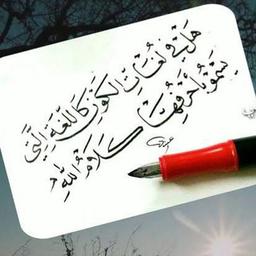 هَل في لُغاتِ الكَونِ كَاللُّغَةِ الَّتي
يَسمُو بِأحرُفِها كَلامُ اللهِ